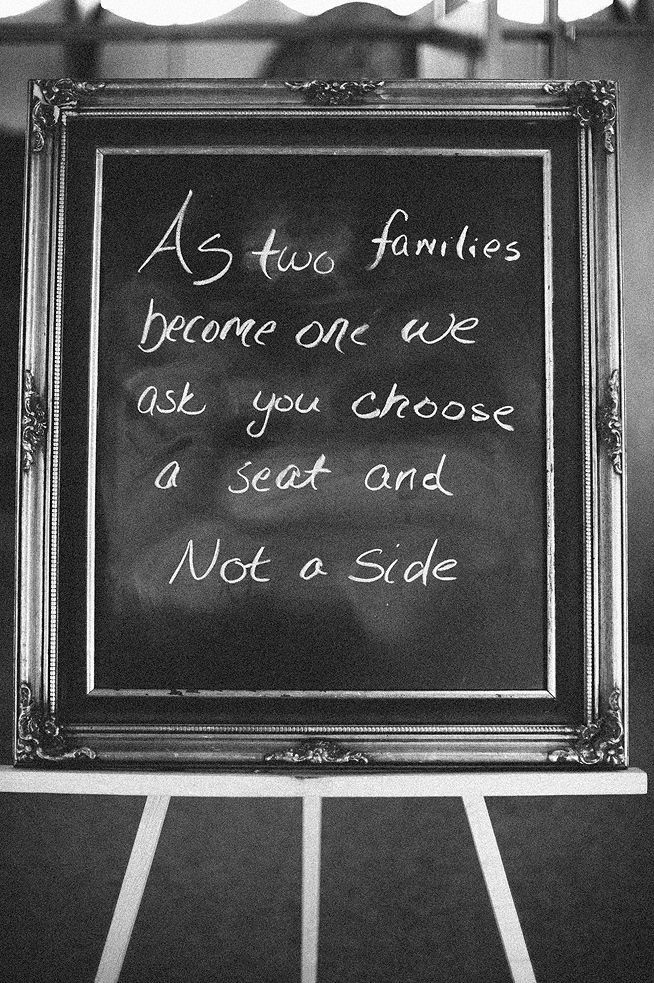 As two families
become one we
ask you choose
a seat and
Not a Side